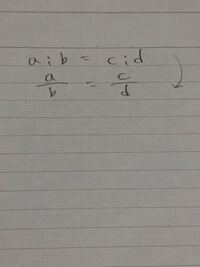 a : b = c : d
a/b = c/d